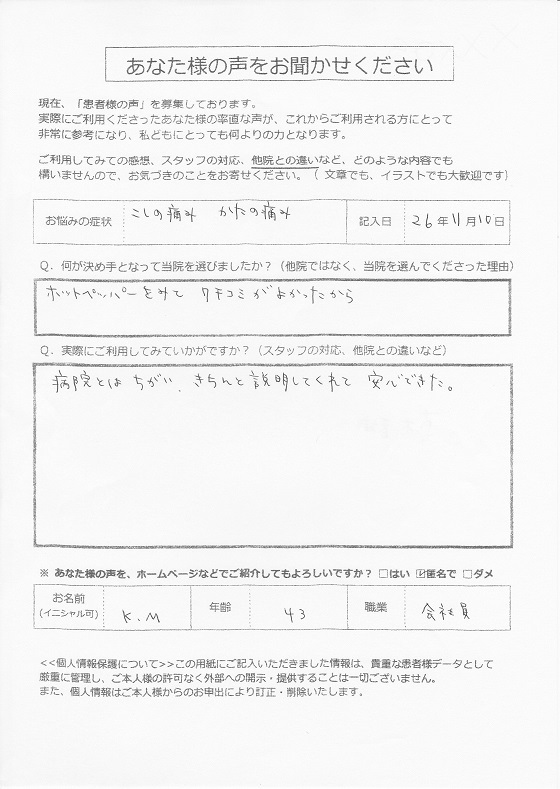 あなた様の声をお聞かせください
現在、「患者様の声」を募集しております。
実際にご利用くださったあなた様の率直な声が、これからご利用される方にとって
非常に参考になり、私どもにとっても何よりの力となります。
ご利用してみての感想、スタッフの対応、他院との違いなど、どのような内容でも
構いませんので、お気づきのことをお寄せください。（文章でも、イラストでも大歓迎です）
お悩みの症状 こしの痛み かたの痛み 記入日 26年11月10日
Q．何が決め手となって当院を選びましたか？（他院ではなく、当院を選んでくださった理由）
ホットペッパーをみて クチコミがよかったから
Q．実際にご利用してみていかがですか？（スタッフの対応、他院との違いなど）
病院とはちがい、きちんと説明してくれて 安心できた。
※ あなた様の声を、ホームページなどでご紹介してもよろしいですか？ □はい ☑匿名で □ダメ
お名前
(イニシャル可) K.M 年齢 43 職業 会社員
<<個人情報保護について>>この用紙にご記入いただきました情報は、貴重な患者様データとして
厳重に管理し、ご本人様の許可なく外部への開示・提供することは一切ございません。
また、個人情報はご本人様からのお申出により訂正・削除いたします。